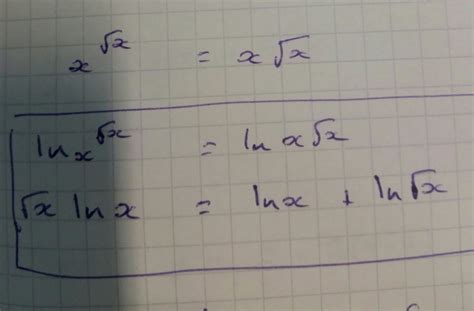 x^√x = x√x
ln x^√x = ln x√x
√x ln x = ln x + ln √x